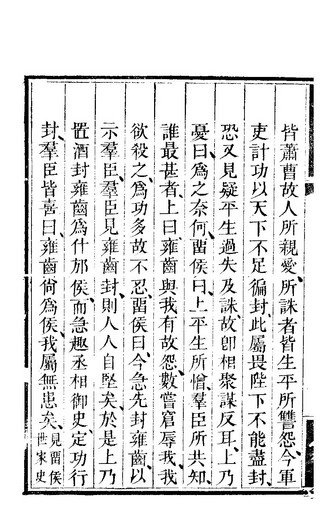 皆蕭曹故人所親愛、所誅者皆生平所讐怨、今軍
吏計功以天下不足徧封、此屬畏陛下不能盡封、
恐又見疑平生過失及誅、故卽相聚謀反耳、上乃
憂曰、爲之奈何、留侯曰、上平生所憎、羣臣所共知、
誰最甚者、上曰、雍齒與我有故怨、數嘗窘辱我、我
欲殺之、爲功多故不忍、留侯曰、今急先封雍齒、以
示羣臣、羣臣見雍齒封、則人人自堅矣、於是上乃
置酒封雍齒爲什邡侯、而急趣丞相御史、定功行
封、羣臣皆喜曰、雍齒尙爲侯、我屬無患矣、見留侯
世家史